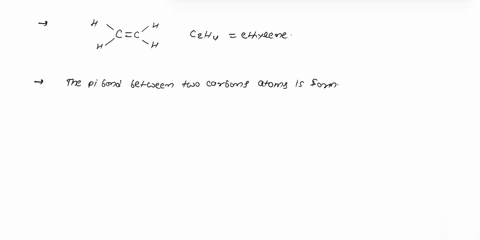 → H H
C=C C2H4 = ethylene.
H H
→ The pi bond between two carbons atoms is form